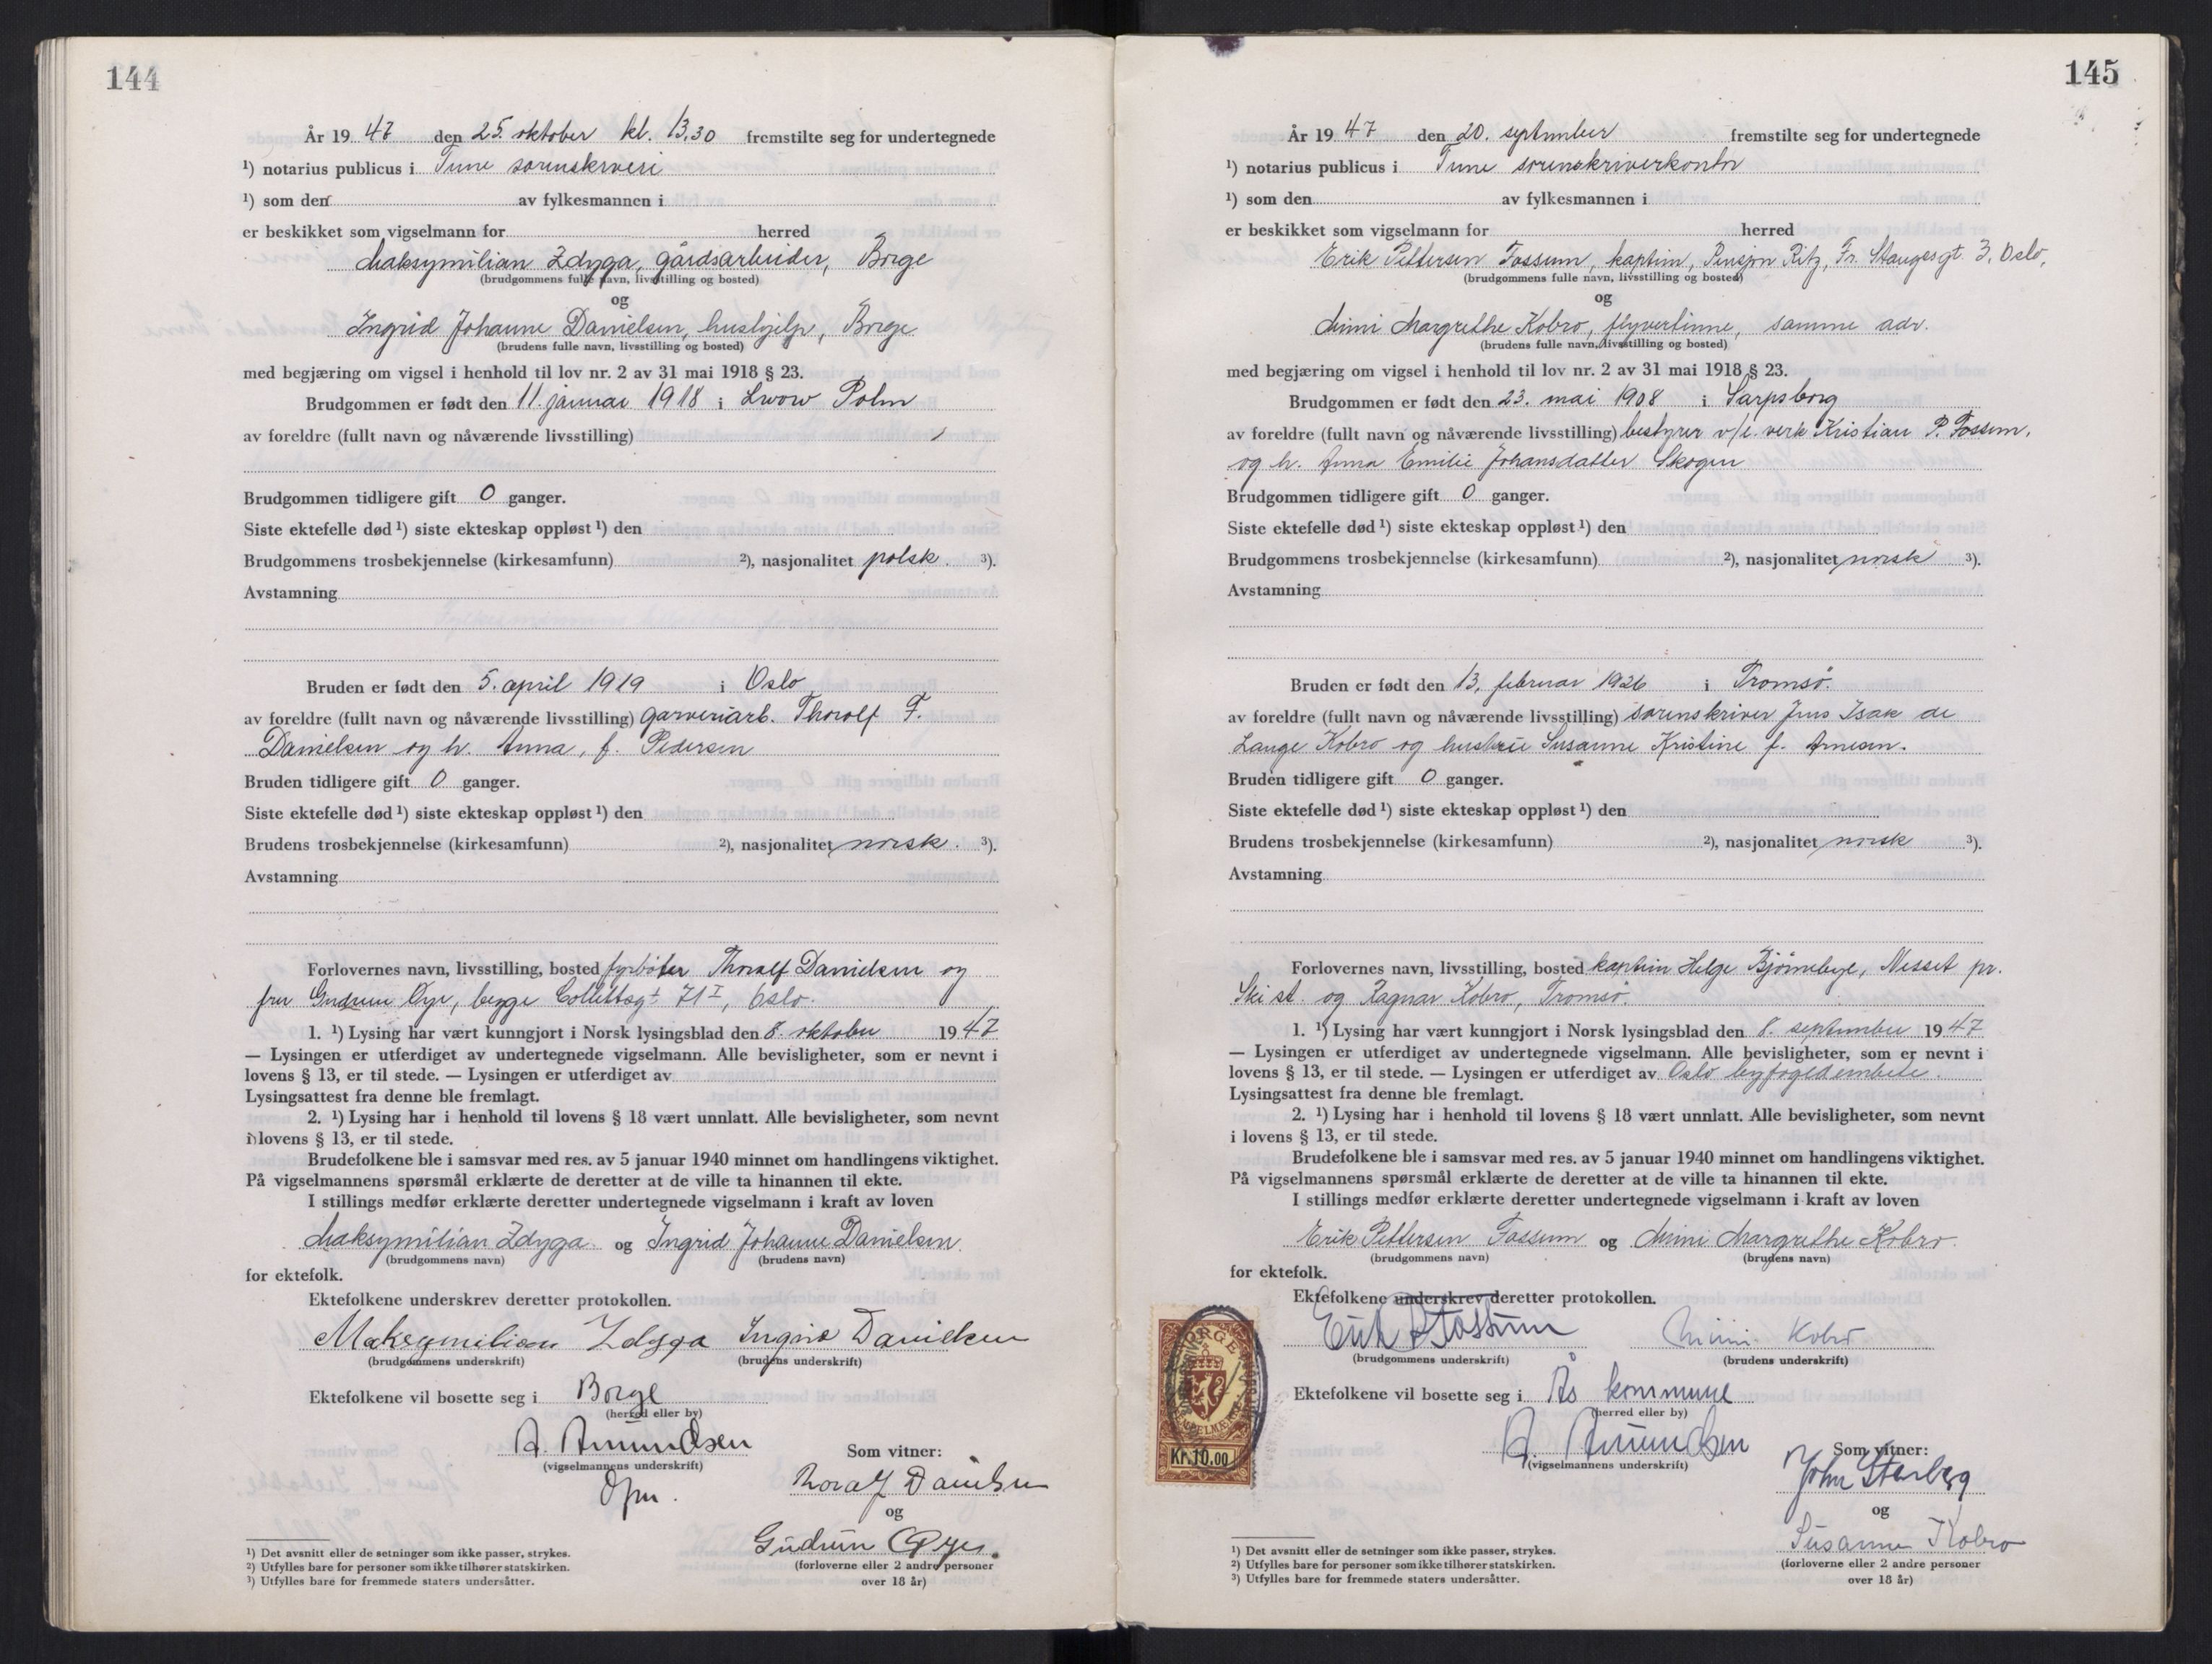 144
År 19 47 den 25. oktober kl. 13,30 fremstilte seg for undertegnede
¹) notarius publicus i Tune sorenskriveri
¹) som den av fylkesmannen i
er beskikket som vigselmann for herred
Maksymilian Zdyga, gårdsarbeider, Borge
(brudgommens fulle navn, livsstilling og bosted)
og
Ingrid Johanne Danielsen, hushjelp, Borge
(brudens fulle navn, livsstilling og bosted)
med begjæring om vigsel i henhold til lov nr. 2 av 31 mai 1918 § 23.
Brudgommen er født den 11. januar 1918 i Lwow Polen
av foreldre (fullt navn og nåværende livsstilling) /
Brudgommen tidligere gift 0 ganger.
Siste ektefelle død ¹) siste ekteskap oppløst ¹) den
Brudgommens trosbekjennelse (kirkesamfunn) ²), nasjonalitet polsk. ³).
Avstamning
Bruden er født den 5. april 1919 i Oslo
av foreldre (fullt navn og nåværende livsstilling) garveriarb. Thorolf F.
Danielsen og h. Anna, f. Pedersen
Bruden tidligere gift 0 ganger.
Siste ektefelle død ¹) siste ekteskap oppløst ¹) den
Brudens trosbekjennelse (kirkesamfunn) ²), nasjonalitet norsk. ³).
Avstamning
Forlovernes navn, livsstilling, bosted fyrbøter Thoralf Danielsen og
fru Gudrun Øye, begge Collettsgt 71 I, Oslo.
1. ¹) Lysing har vært kunngjort i Norsk lysingsblad den 8. oktober 1947
— Lysingen er utferdiget av undertegnede vigselmann. Alle bevisligheter, som er nevnt i
lovens § 13, er til stede. — Lysingen er utferdiget av
Lysingsattest fra denne ble fremlagt.
2. ¹) Lysing har i henhold til lovens § 18 vært unnlatt. Alle bevisligheter, som nevnt
i lovens § 13, er til stede.
Brudefolkene ble i samsvar med res. av 5 januar 1940 minnet om handlingens viktighet.
På vigselmannens spørsmål erklærte de deretter at de ville ta hinannen til ekte.
I stillings medfør erklærte deretter undertegnede vigselmann i kraft av loven
Maksymilian Zdyga og Ingrid Johanne Danielsen
(brudgommens navn) (brudens navn)
for ektefolk.
Ektefolkene underskrev deretter protokollen.
Maksymilian Zdyga Ingrid Danielsen
(brudgommens underskrift) (brudens underskrift)
Ektefolkene vil bosette seg i Borge
(herred eller by)
A. Amundsen Som vitner:
(vigselmannens underskrift)
Thoralf Danielsen
og
Gudrun Øye.
(forloverne eller 2 andre personer
over 18 år)
¹) Det avsnitt eller de setninger som ikke passer, strykes.
²) Utfylles bare for personer som ikke tilhører statskirken.
³) Utfylles bare for fremmede staters undersåtter.
145
År 19 47 den 20. september fremstilte seg for undertegnede
¹) notarius publicus i Tune sorenskriverkontor
¹) som den av fylkesmannen i
er beskikket som vigselmann for herred
Erik Pettersen Fossum, kaptein, Pensjon Ritz, Fr. Stangesgt. 3, Oslo,
(brudgommens fulle navn, livsstilling og bosted)
og
Mimi Margrethe Kobro, flyvertinne, samme adr.
(brudens fulle navn, livsstilling og bosted)
med begjæring om vigsel i henhold til lov nr. 2 av 31 mai 1918 § 23.
Brudgommen er født den 23. mai 1908 i Sarpsborg
av foreldre (fullt navn og nåværende livsstilling) bestyrer v/e. verk Kristian P. Fossum,
og h. Anna Emilie Johansdatter Skogen
Brudgommen tidligere gift 0 ganger.
Siste ektefelle død ¹) siste ekteskap oppløst ¹) den
Brudgommens trosbekjennelse (kirkesamfunn) ²), nasjonalitet norsk ³).
Avstamning
Bruden er født den 13, februar 1926 i Tromsø.
av foreldre (fullt navn og nåværende livsstilling) sorenskriver Jens Isak de
Lange Kobro og hustru Susanne Kristine f. Arnesen.
Bruden tidligere gift 0 ganger.
Siste ektefelle død ¹) siste ekteskap oppløst ¹) den
Brudens trosbekjennelse (kirkesamfunn) ²), nasjonalitet norsk ³).
Avstamning
Forlovernes navn, livsstilling, bosted kaptein Helge Bjørnebye, Nesset pr.
Ski st. og Ragnar Kobro, Tromsø.
1. ¹) Lysing har vært kunngjort i Norsk lysingsblad den 8. september 1947
— Lysingen er utferdiget av undertegnede vigselmann. Alle bevisligheter, som er nevnt i
lovens § 13, er til stede. — Lysingen er utferdiget av Oslo byfogdembete.
Lysingsattest fra denne ble fremlagt.
2. ¹) Lysing har i henhold til lovens § 18 vært unnlatt. Alle bevisligheter, som nevnt
i lovens § 13, er til stede.
Brudefolkene ble i samsvar med res. av 5 januar 1940 minnet om handlingens viktighet.
På vigselmannens spørsmål erklærte de deretter at de ville ta hinannen til ekte.
I stillings medfør erklærte deretter undertegnede vigselmann i kraft av loven
Erik Pettersen Fossum og Mimi Margrethe Kobro.
(brudgommens navn) (brudens navn)
for ektefolk.
Ektefolkene underskrev deretter protokollen.
Erik P Fossum Mimi Kobro
(brudgommens underskrift) (brudens underskrift)
Ektefolkene vil bosette seg i Ås kommune
(herred eller by)
A. Amundsen Som vitner:
(vigselmannens underskrift)
NORGE
Kr. 10.00
og
Susanne Kobro
(forloverne eller 2 andre personer
over 18 år)
¹) Det avsnitt eller de setninger som ikke passer, strykes.
²) Utfylles bare for personer som ikke tilhører statskirken.
³) Utfylles bare for fremmede staters undersåtter.